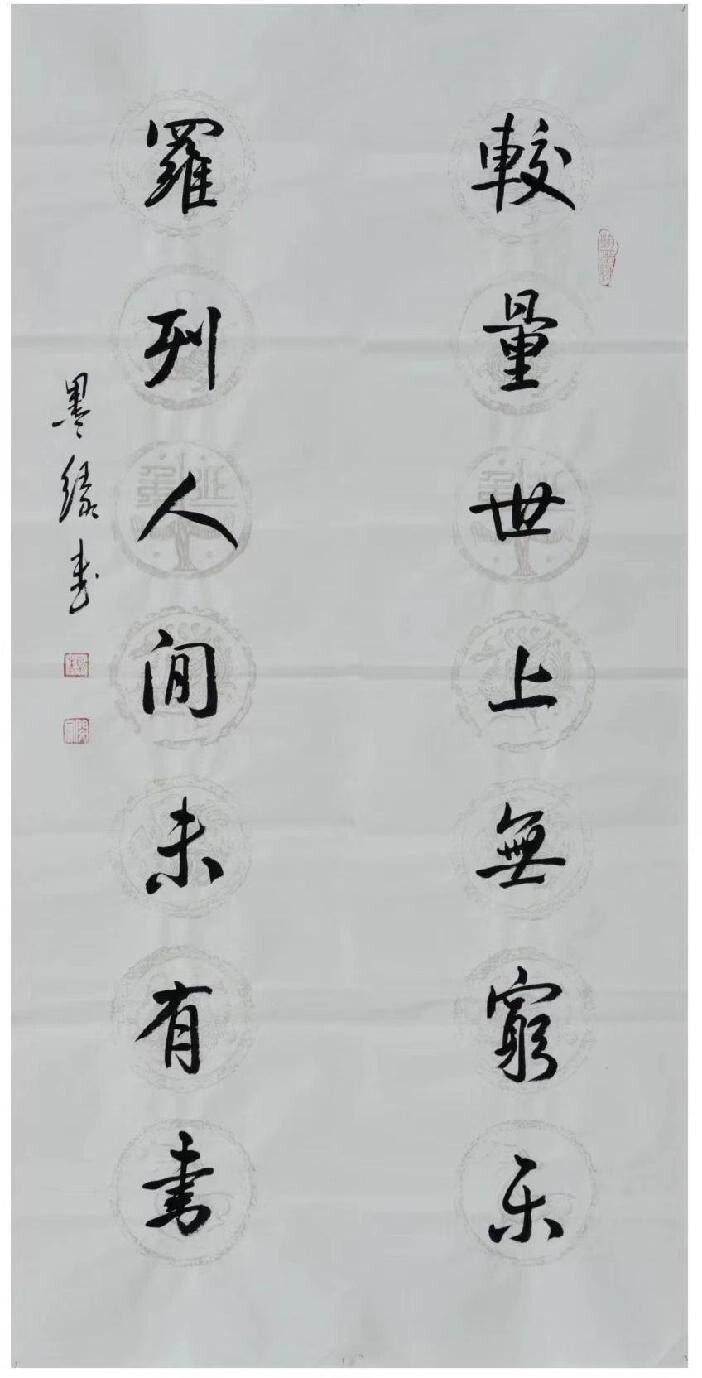 較量世上無窮乐
羅列人间未有書
墨缘书